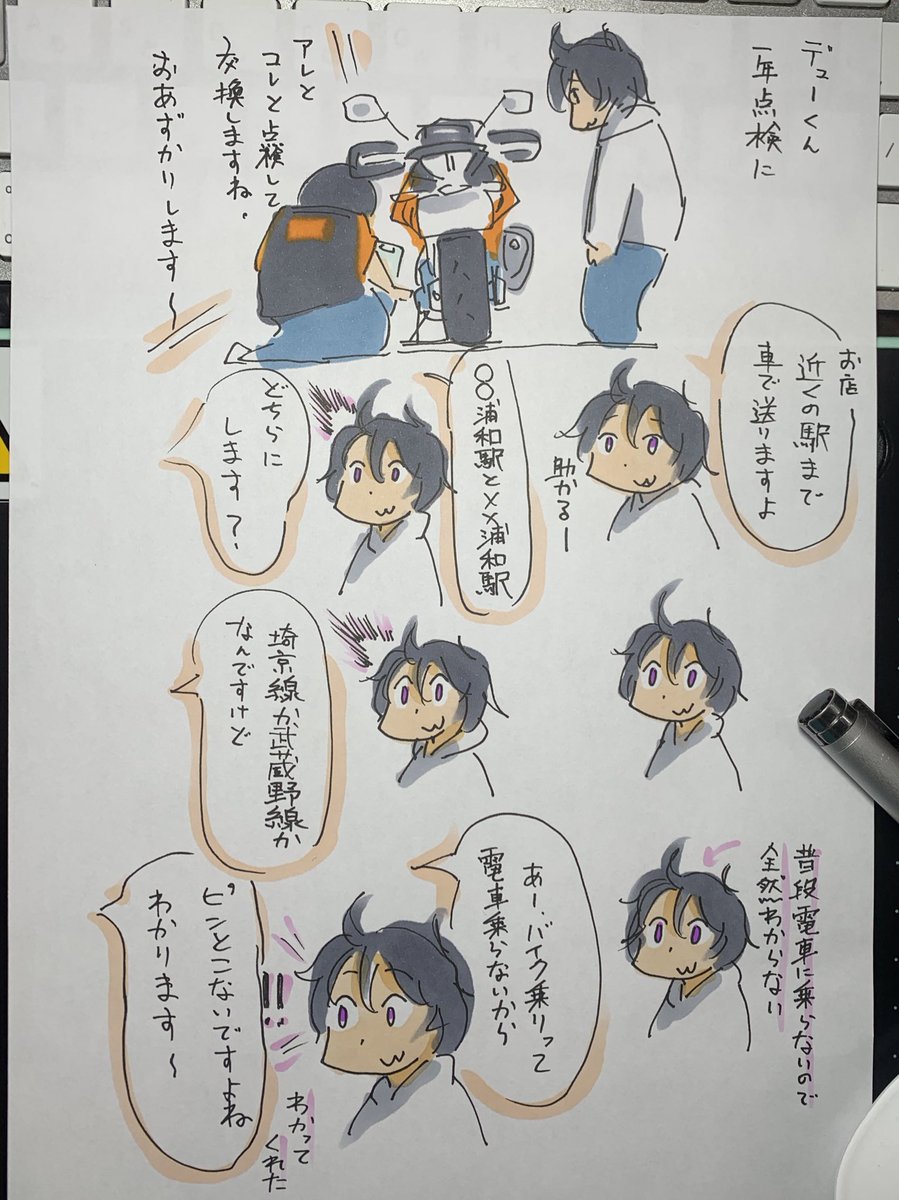 デューくん
一年点検に
アレと
コレと点検して
交換しますね。
おあずかりします〜
お店ー
近くの駅まで
車で送りますよ
助かるー
〇〇浦和駅と××浦和駅
どちらに
します？
埼京線か武蔵野線か
なんですけど
普段電車に乗らないので
全然わからない
あー、バイク乗りって
電車乗らないから
ピンとこないですよね
わかります〜
!!
わかって
くれた